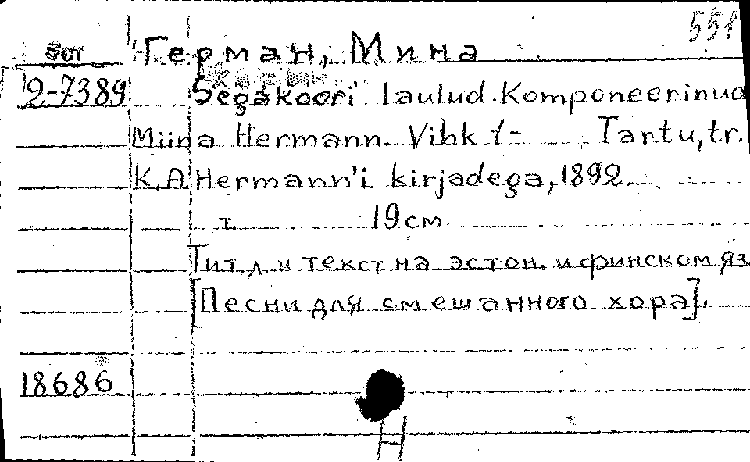 551
Герман, Мина
2-7389 Segakoori laulud. Komponeerinud
Miina Hermann. Vihk 1- Tartu, tr.
K.A Hermann'i kirjadega, 1892
т. 19 см
Тит. л. и текст на эстон. и финском яз
[Песни для смешанного хора].
18686
H